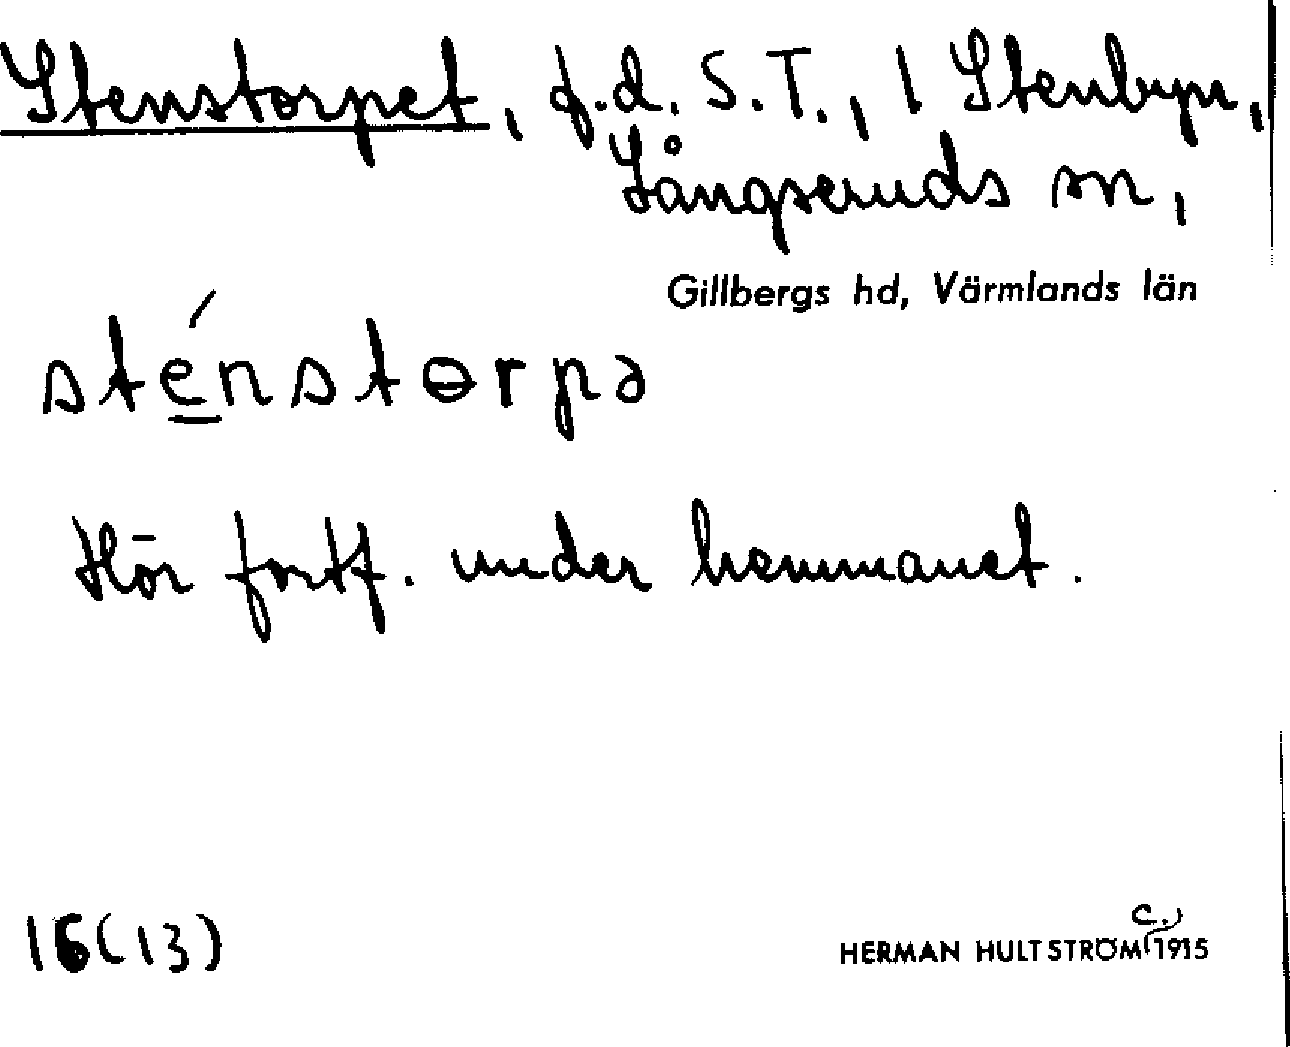 Stenstorpet, f.d. S.T., 1 Stenbyn,
Långseruds sn,
Gillbergs hd, Värmlands län
sténstɵrpə
Hör fortf. under hemmanet.
16(13)
HERMAN HULTSTRÖM (c.) 1915